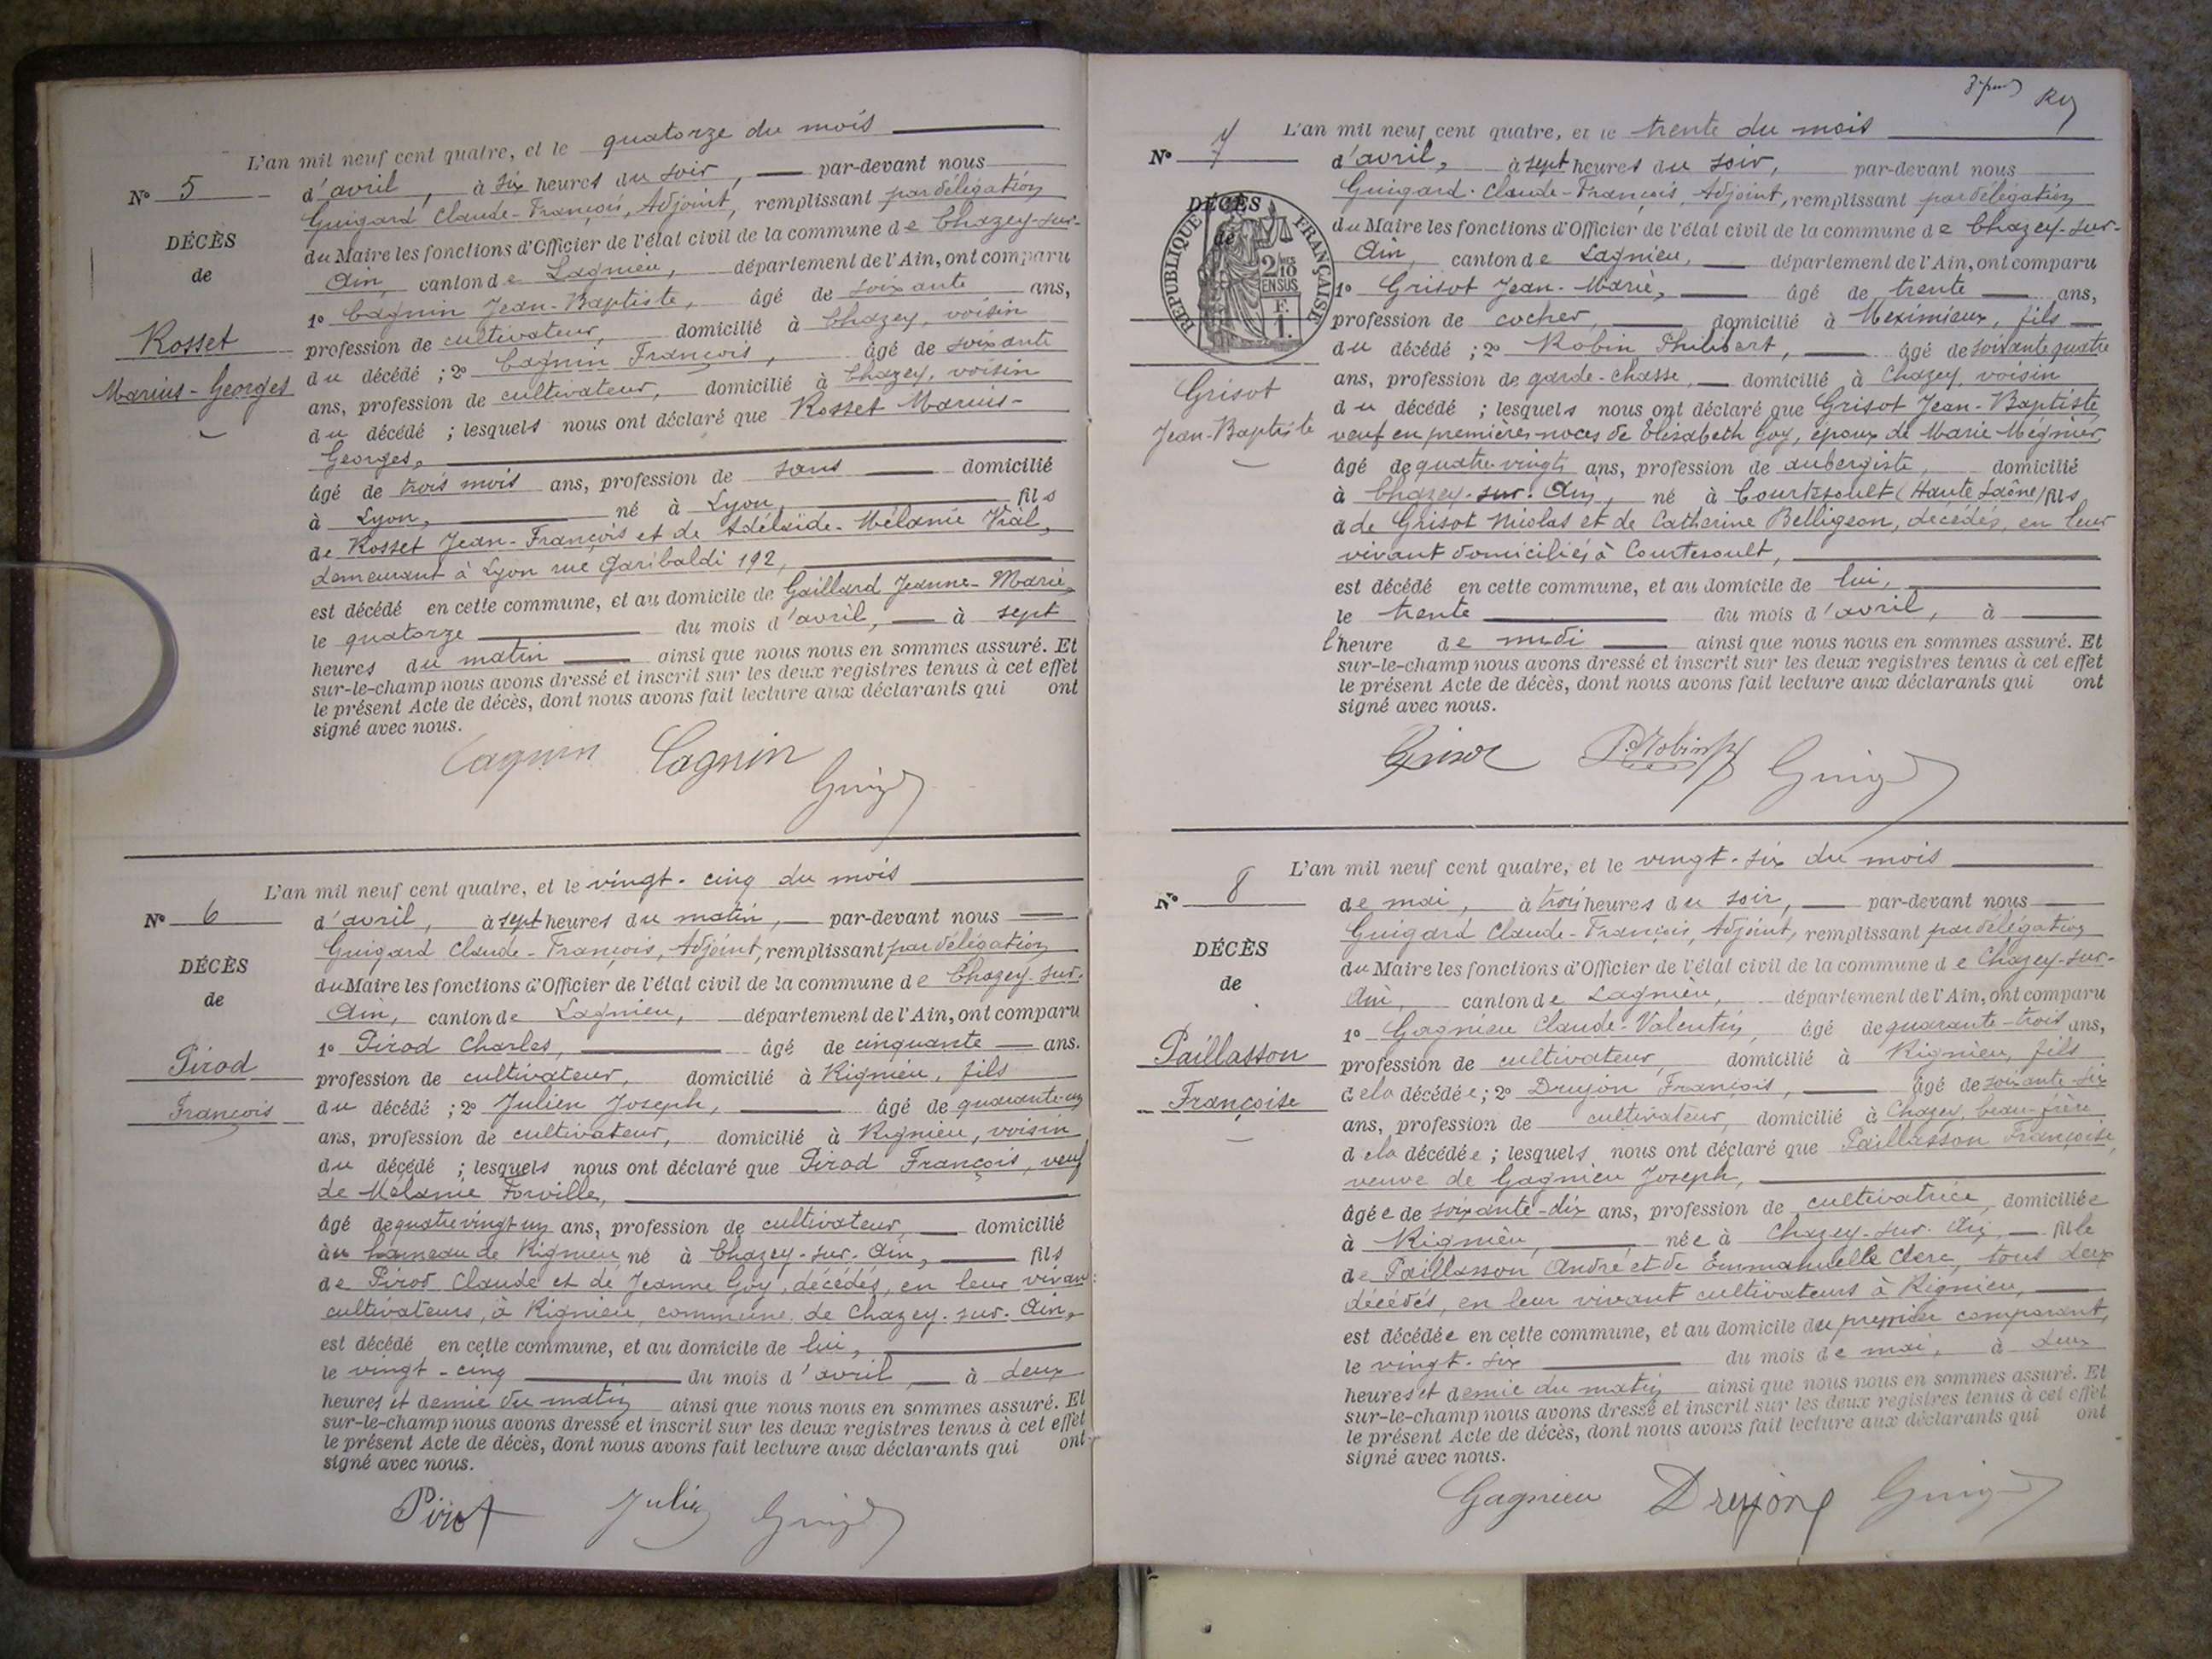 L'an mil neuf cent quatre, et le quatorze du mois
N° 5
d'avril, à six heures du soir, par-devant nous
Guigard Claude-François, Adjoint, remplissant par délégation
DÉCÈS
du Maire les fonctions d'Officier de l'état civil de la commune de Chazey-sur-
de
Ain, canton de Lagnieu, département de l'Ain, ont comparu
1° Cagnin Jean-Baptiste, âgé de soixante ans,
Rosset
profession de cultivateur, domicilié à Chazey, voisin
Marius-Georges
du décédé ; 2° Cagnin François, âgé de soixante
ans, profession de cultivateur, domicilié à Chazey, voisin
du décédé ; lesquels nous ont déclaré que Rosset Marius-
Georges,
âgé de trois mois ans, profession de sans domicilié
à Lyon, né à Lyon, fils
de Rosset Jean-François et de Adélaïde-Mélanie Vial,
demeurant à Lyon rue Garibaldi 192,
est décédé en cette commune, et au domicile de Gaillard Jeanne-Marie,
le quatorze du mois d'avril, à sept
heures du matin ainsi que nous nous en sommes assuré. Et
sur-le-champ nous avons dressé et inscrit sur les deux registres tenus à cet effet
le présent Acte de décès, dont nous avons fait lecture aux déclarants qui ont
signé avec nous.
Cagnin Cagnin
L'an mil neuf cent quatre, et le vingt-cinq du mois
N° 6
d'avril, à sept heures du matin, par-devant nous
Guigard Claude-François, Adjoint, remplissant par délégation
DÉCÈS
du Maire les fonctions d'Officier de l'état civil de la commune de Chazey-sur-
de
Ain, canton de Lagnieu, département de l'Ain, ont comparu
1° Pirod Charles, âgé de cinquante ans.
Pirod
profession de cultivateur, domicilié à Rignieu, fils
François
du décédé ; 2° Julien Joseph, âgé de quarante-un
ans, profession de cultivateur, domicilié à Rignieu, voisin
du décédé ; lesquels nous ont déclaré que Pirod François, veuf
de Mélanie Forville,
âgé de quatre vingt un ans, profession de cultivateur, domicilié
au hameau de Rignieu né à Chazey-sur-Ain, fils
de Pirod Claude et de Jeanne Goy, décédés, en leur vivant
cultivateurs, à Rignieu, commune de Chazey-sur-Ain,
est décédé en cette commune, et au domicile de lui,
le vingt-cinq du mois d'avril à deux
heures et demie du matin ainsi que nous nous en sommes assuré. Et
sur-le-champ nous avons dressé et inscrit sur les deux registres tenus à cet effet
le présent Acte de décès, dont nous avons fait lecture aux déclarants qui ont
signé avec nous.
Pirod Julien
L'an mil neuf cent quatre, et le trente du mois
N° 7
d'avril, à sept heures du soir, par-devant nous
Guigard-Claude-François, Adjoint, remplissant par délégation
DÉCÈS
de
RÉPUBLIQUE FRANÇAISE
du Maire les fonctions d'Officier de l'état civil de la commune de Chazey-sur-
Ain, canton de Lagnieu, département de l'Ain, ont comparu
1° Grisot Jean-Marie, âgé de trente ans,
profession de cocher, domicilié à Meximieux, fils
du décédé ; 2° Robin Philibert, âgé de soixante quatre
Grisot
ans, profession de garde-chasse, domicilié à Chazey, voisin
du décédé ; lesquels nous ont déclaré que Grisot Jean-Baptiste
Jean-Baptiste
veuf en premières noces de Elisabeth Goy, époux de Marie Mégnier
âgé de quatre-vingts ans, profession de aubergiste, domicilié
à Chazey-sur-Ain, né à Courtesoult (Haute Saône) fils
de Grisot Nicolas et de Catherine Belligeon, décédés, en leur
vivant domiciliés à Courtesoult,
est décédé en cette commune, et au domicile de lui,
le trente du mois d'avril, à
l'heure de midi ainsi que nous nous en sommes assuré. Et
sur-le-champ nous avons dressé et inscrit sur les deux registres tenus à cet effet
le présent Acte de décès, dont nous avons fait lecture aux déclarants qui ont
signé avec nous.
Grisot P. Robin
L'an mil neuf cent quatre, et le vingt-six du mois
N° 8
de mai, à trois heures du soir, par-devant nous
Guigard Claude-François, Adjoint, remplissant par délégation
DÉCÈS
du Maire les fonctions d'Officier de l'état civil de la commune de Chazey-sur-
de
Ain, canton de Lagnieu, département de l'Ain, ont comparu
1° Gagnieu Claude-Valentin, âgé de quarante-trois ans,
Paillasson
profession de cultivateur, domicilié à Rignieu, fils
Françoise
de la décédée ; 2° Drujon François, âgé de soixante-six
ans, profession de cultivateur, domicilié à Chazey, beau-frère
de la décédée ; lesquels nous ont déclaré que Paillasson Françoise,
veuve de Gagnieu Joseph,
âgée de soixante-dix ans, profession de cultivatrice, domiciliée
à Rignieu, née à Chazey-sur-Ain, fille
de Paillasson André et de Emmanuelle Clerc, tous deux
décédés, en leur vivant cultivateurs à Rignieu,
est décédée en cette commune, et au domicile du premier comparant,
le vingt-six du mois de mai, à deux
heures et demie du matin ainsi que nous nous en sommes assuré. Et
sur-le-champ nous avons dressé et inscrit sur les deux registres tenus à cet effet
le présent Acte de décès, dont nous avons fait lecture aux déclarants qui ont
signé avec nous.
Gagnieu Drujon